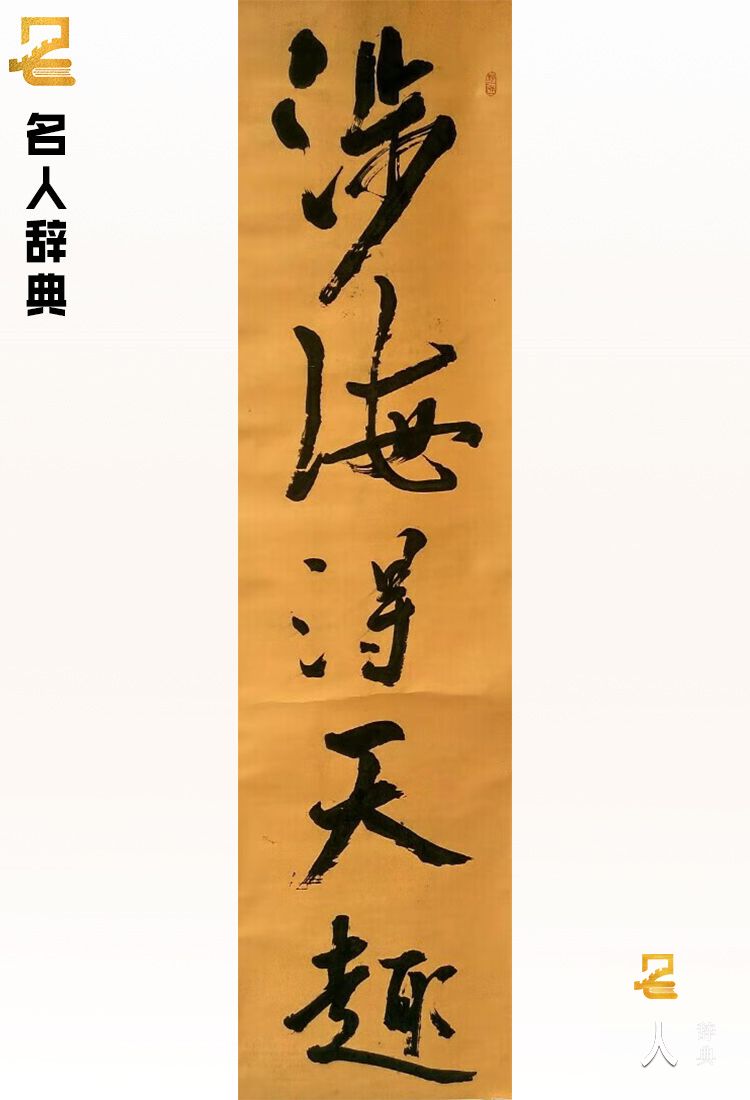 名人辞典
涉海得天趣
人
辞典